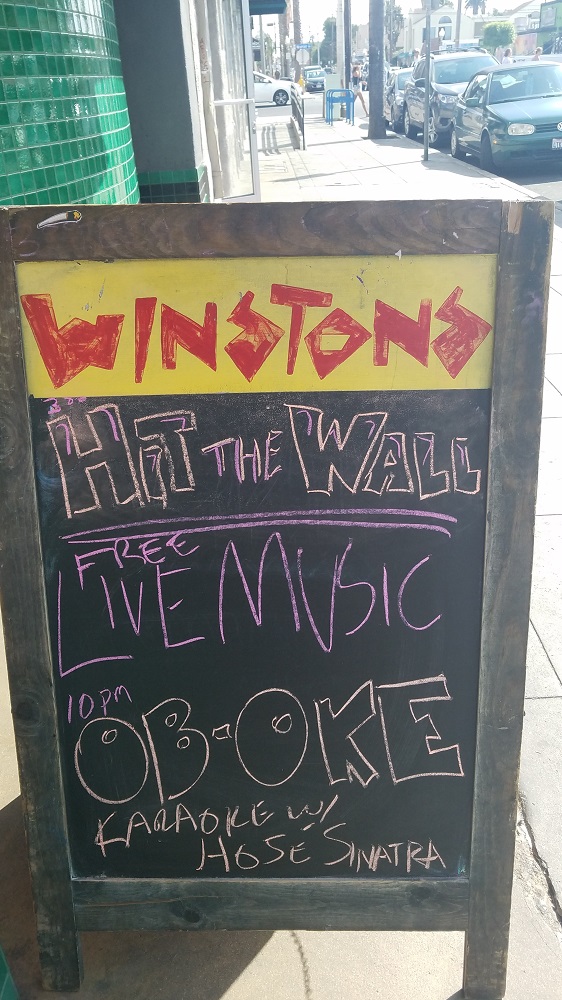 WINSTONS
HIT THE WALL
FREE
LIVE MUSIC
10PM
OB-OKE
KARAOKE W/
HOSE SINATRA